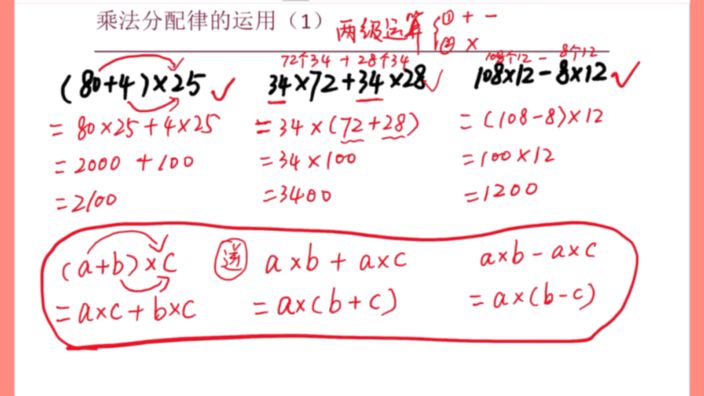 乘法分配律的运用（1）
两级运算 { ① + −
② ×
(80+4)×25
= 80×25+4×25
= 2000 +100
= 2100
72个34 + 28个34
34×72+34×28
= 34×(72+28)
= 34×100
= 3400
108个12 − 8个12
108×12−8×12
= (108-8)×12
= 100×12
= 1200
(a+b)×c
= a×c+b×c
逆
a×b + a×c
= a×(b+c)
a×b−a×c
= a×(b-c)